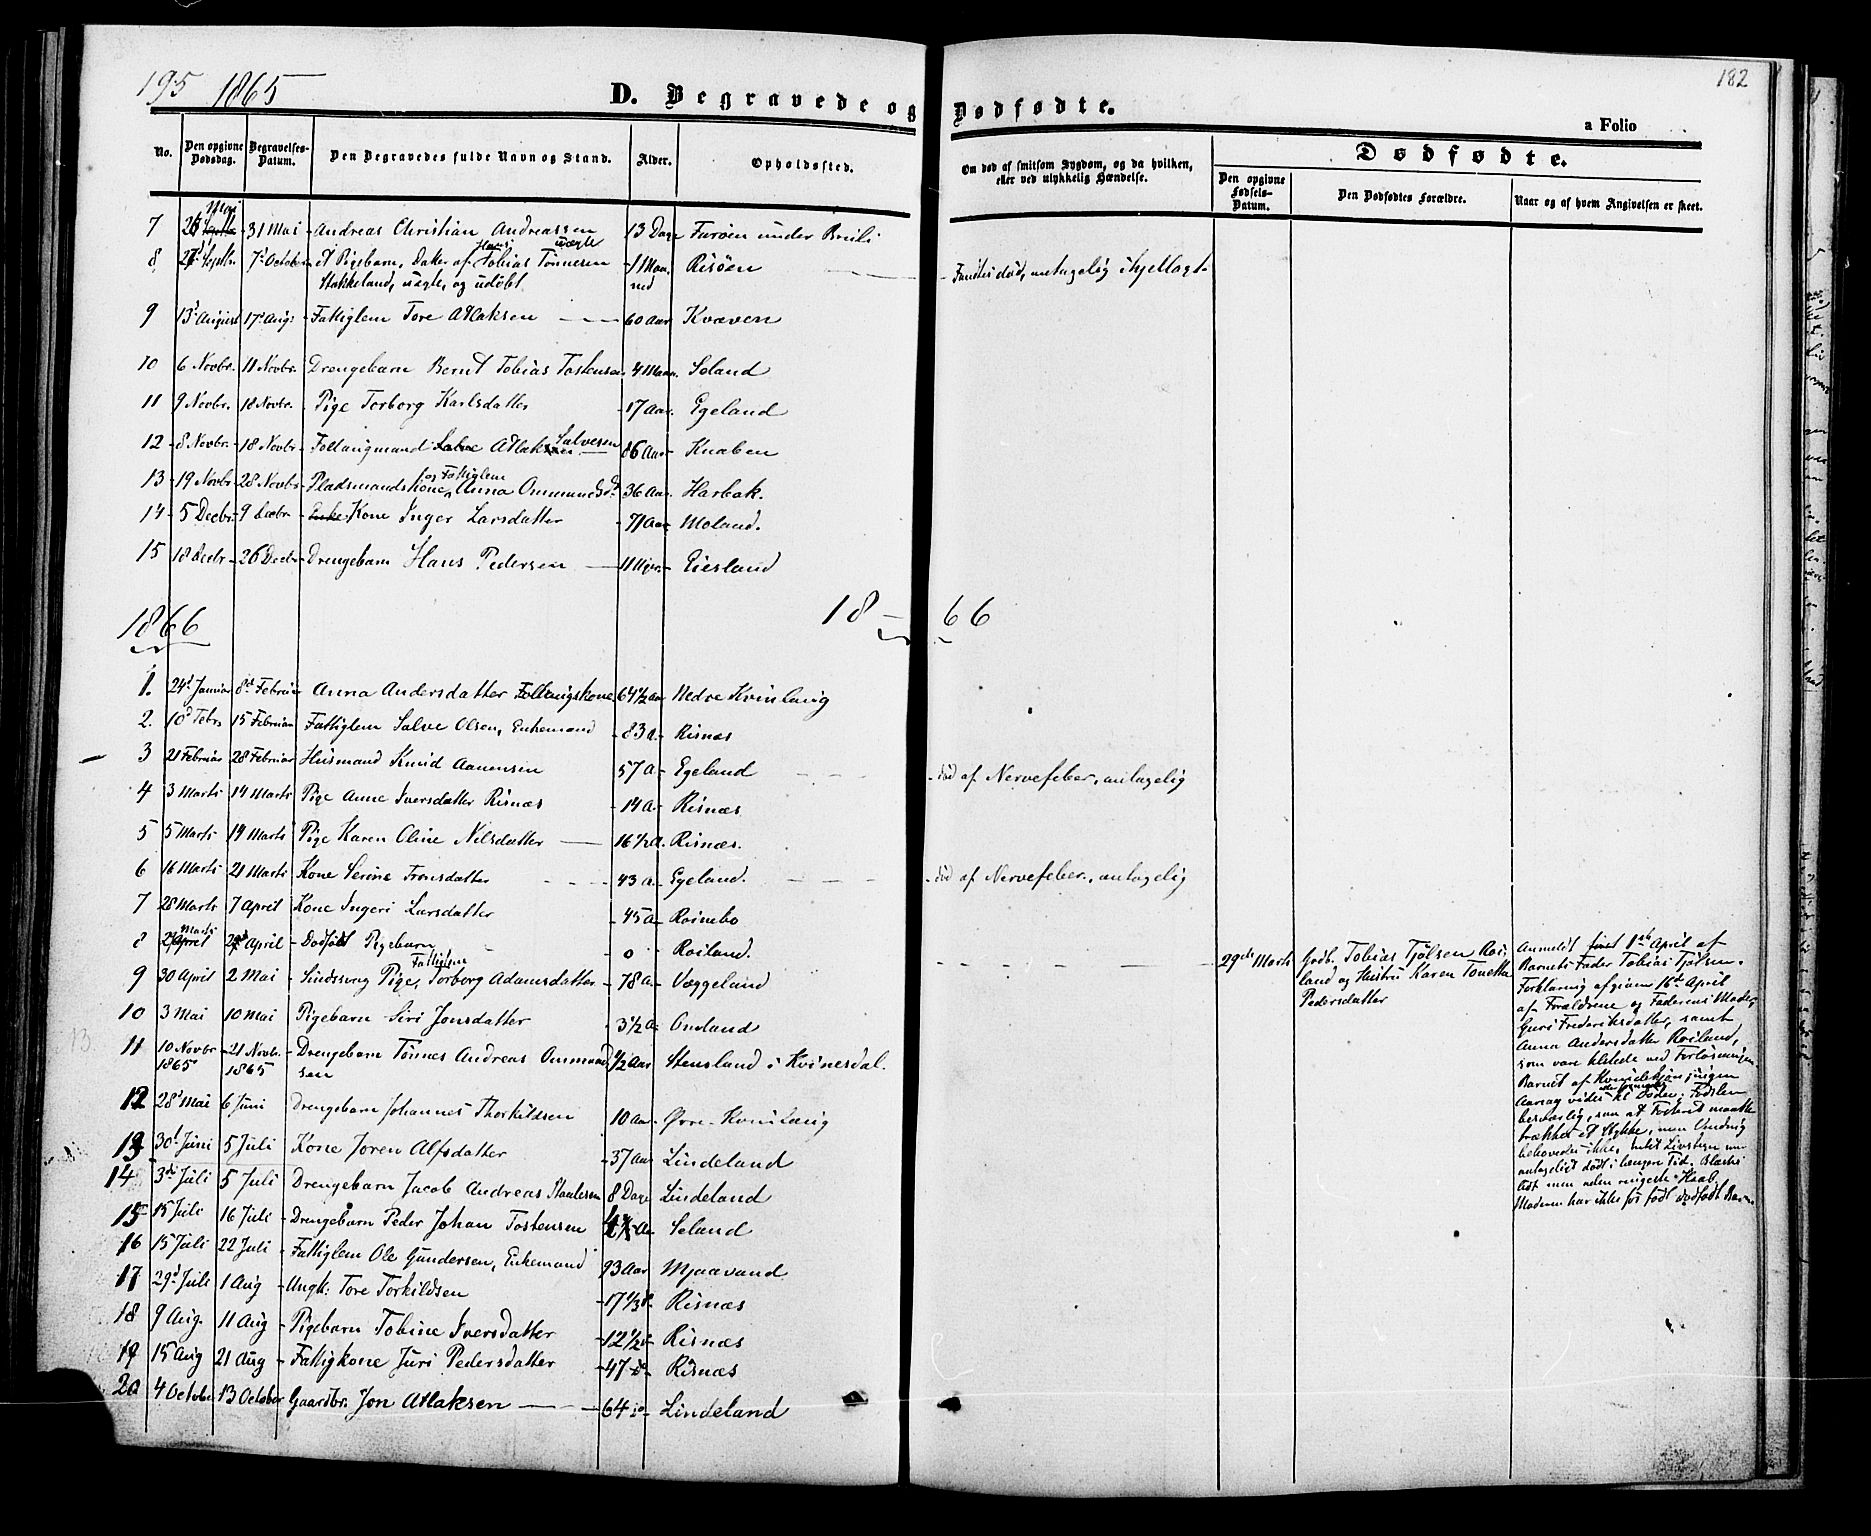 195 1865
182
D. Begravede og Dødfødte.
a Folio
No. Den opgivne Dødsdag. Begravelses-Datum. Den Begravedes fulde Navn og Stand. Alder. Opholdssted. Om død af smitsom Sygdom, og da hvilken, eller ved ulykkelig Hændelse. Dødfødte.
Den opgivne Fødsels-Datum. Den Dødfødtes Forældre. Naar og af hvem Angivelsen er skeet.
7 26 Mai 31 Mai Andreas Christian Andreassen uægte 13 Dage under
8 27d Septbr. 7d October et Pigebarn, Datter af Tobias Tønnesen 1 Maa- Risøen
Stakkeland, uægte, og udøbt ned Fandtes død, antagelig ihjellagt
9 13d August 17d Aug: Fattiglem Tore Atlaksen 60 Aar Kvæven
10 6 Novbr. 11 Novbr. Drengebarn Bernt Tobias Tostensen 4 Maan. Seland
11 9 Novbr. 18 Novbr. Pige Torborg Karlsdatter 17 Aar. Egeland
12 8 Novbr. 18 Novbr. Follaugmand Atlak Salvesen 86 Aar Knaben
13 19 Novbr 28 Novbr Pladsmandskone og Fattiglem Anna Ommundsd. 36 Aar. Harbak.
14 5 Decbr. 9 Decbr. Enke Kone Inger Larsdatter 71 Aar Moland.
15 18 Decbr 26 Decbr Drengebarn Hans Pedersen 11 Uger Eiesland
1866 18-66
1. 24d Januar 8d Februar Anna Andersdatter Follaugskone 64 1/2 Aar Nedre Kvinlaug
2. 10d Febr. 15 Februar Fattiglem Salve Olsen, Enkemand 83 A. Risnæs
3 21 Februar 28 Februar Husmand Knud Aanensen 57 A Egeland død af Nervefeber, antagelig
4 3 Marts 14 Marts Pige Anne Iversdatter Risnæs 14 A. Risnæs
5 5 Marts 14 Marts Pige Karen Oline Nilsdatter 16 1/2 A. Risnæs.
6 16 Marts 21 Marts Kone Serine Tronsdatter 43 A Egeland. død af Nervefeber, antagelig
7 28 Marts 7 April Kone Ingeri Larsdatter 45 A Roinebo
8 29 Marts April Dødfødt Pigebarn 0 Roiland. 29de Marts Gdb. Tobias Tjølsen Roi-
land og Hustru Karen Tonette
Pedersdatter
Anmeldt 1ste April af
Barnets Fader Tobias Tjølsen.
Forklaring afgiven 16de April
af Forældrene og Faderens Moder
Guri Frederiksdatter, samt
Anna Andersdatter Roiland,
som vare tilstede ved Forløsningen
Barnet af Kvindekjøn, ingen
Aarsag vides til Døden; Fødslen
besværlig, saa at Fosteret maatte
trækkes et Stykke, men Vending
behovedes ikke, intet Livstegn
antageligt dødt i længere Tid.
men uden ringeste Haab,
Moderen har ikke før født dødfødt Barn
9 30 April 2 Mai Sindssvag Pige, Fattiglem Torborg Adamsdatter 78 A Væggeland
10 3 Mai 10 Mai Pigebarn Siri Jonsdatter 3 1/2 A Omland
11 10 Novbr 21 Novbr. Drengebarn Tønnes Andreas Ommund- 1/2 Aar Stensland i Kvinesdal.
1865 1865 sen
12 28d Mai 6 Juni Drengebarn Johannes Thorkildsen 10 Aar Øvre Kvinlaug
13 30d Juni 5 Juli Kone Joren Alfsdatter 37 Aar Lindeland
14 3die Juli 5 Juli Drengebarn Jacob Andreas Staalesen 8 Dage Lindeland
15 15 Juli 16 Juli Drengebarn Peder Johan Tostensen Seland
16 15 Juli 22 Juli Fattiglem Ole Gundersen, Enkemand 93 Aar Mjaavand
17 29d Juli 1 Aug Ungk: Tore Torkildsen 17 1/3 Risnæs
18 9 Aug. 11 Aug Pigebarn Tobine Iversdatter 12 1/2 Risnæs
19 15 Aug 21 Aug Fattigkone Juri Pedersdatter 47 Risnæs
20 4 October 13 October Gaardbr. Jon Atlaksen 64 Lindeland